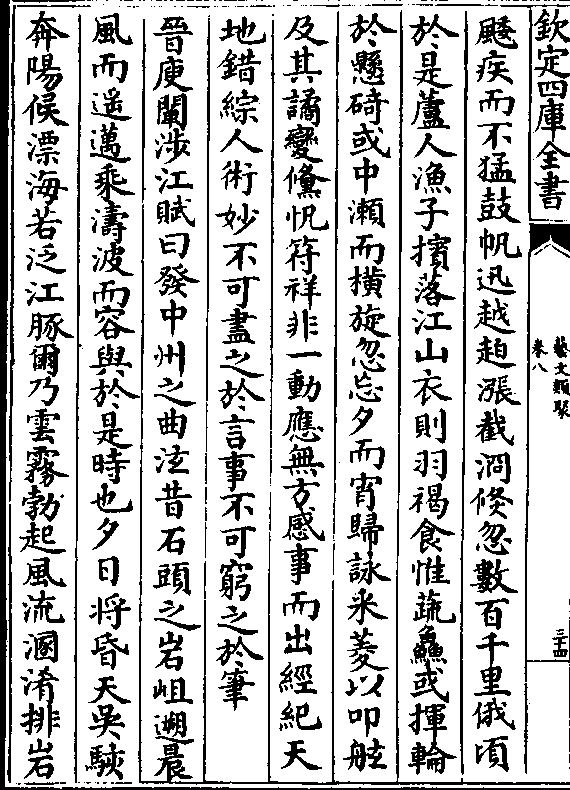 欽定四庫全書
藝文類聚
卷八
三十四
飈疾而不猛鼓帆迅越趍漲截泂倐忽數百千里俄頃
於是蘆人漁子擯落江山衣則羽褐食惟蔬鱻或揮輪
於懸碕或中瀬而橫旋忽忘夕而宵歸詠采菱以叩舷
及其譎變儵怳符祥非一動應無方感事而出經紀天
地錯綜人術妙不可盡之於言事不可窮之於筆
晉庾闡涉江賦曰發中州之曲洼昔石頭之岩岨遡晨
風而遥邁乘濤波而容與於是時也夕日将昏天吳駭
奔陽侯漂海若泛江豚爾乃雲霧勃起風流溷淆排岩